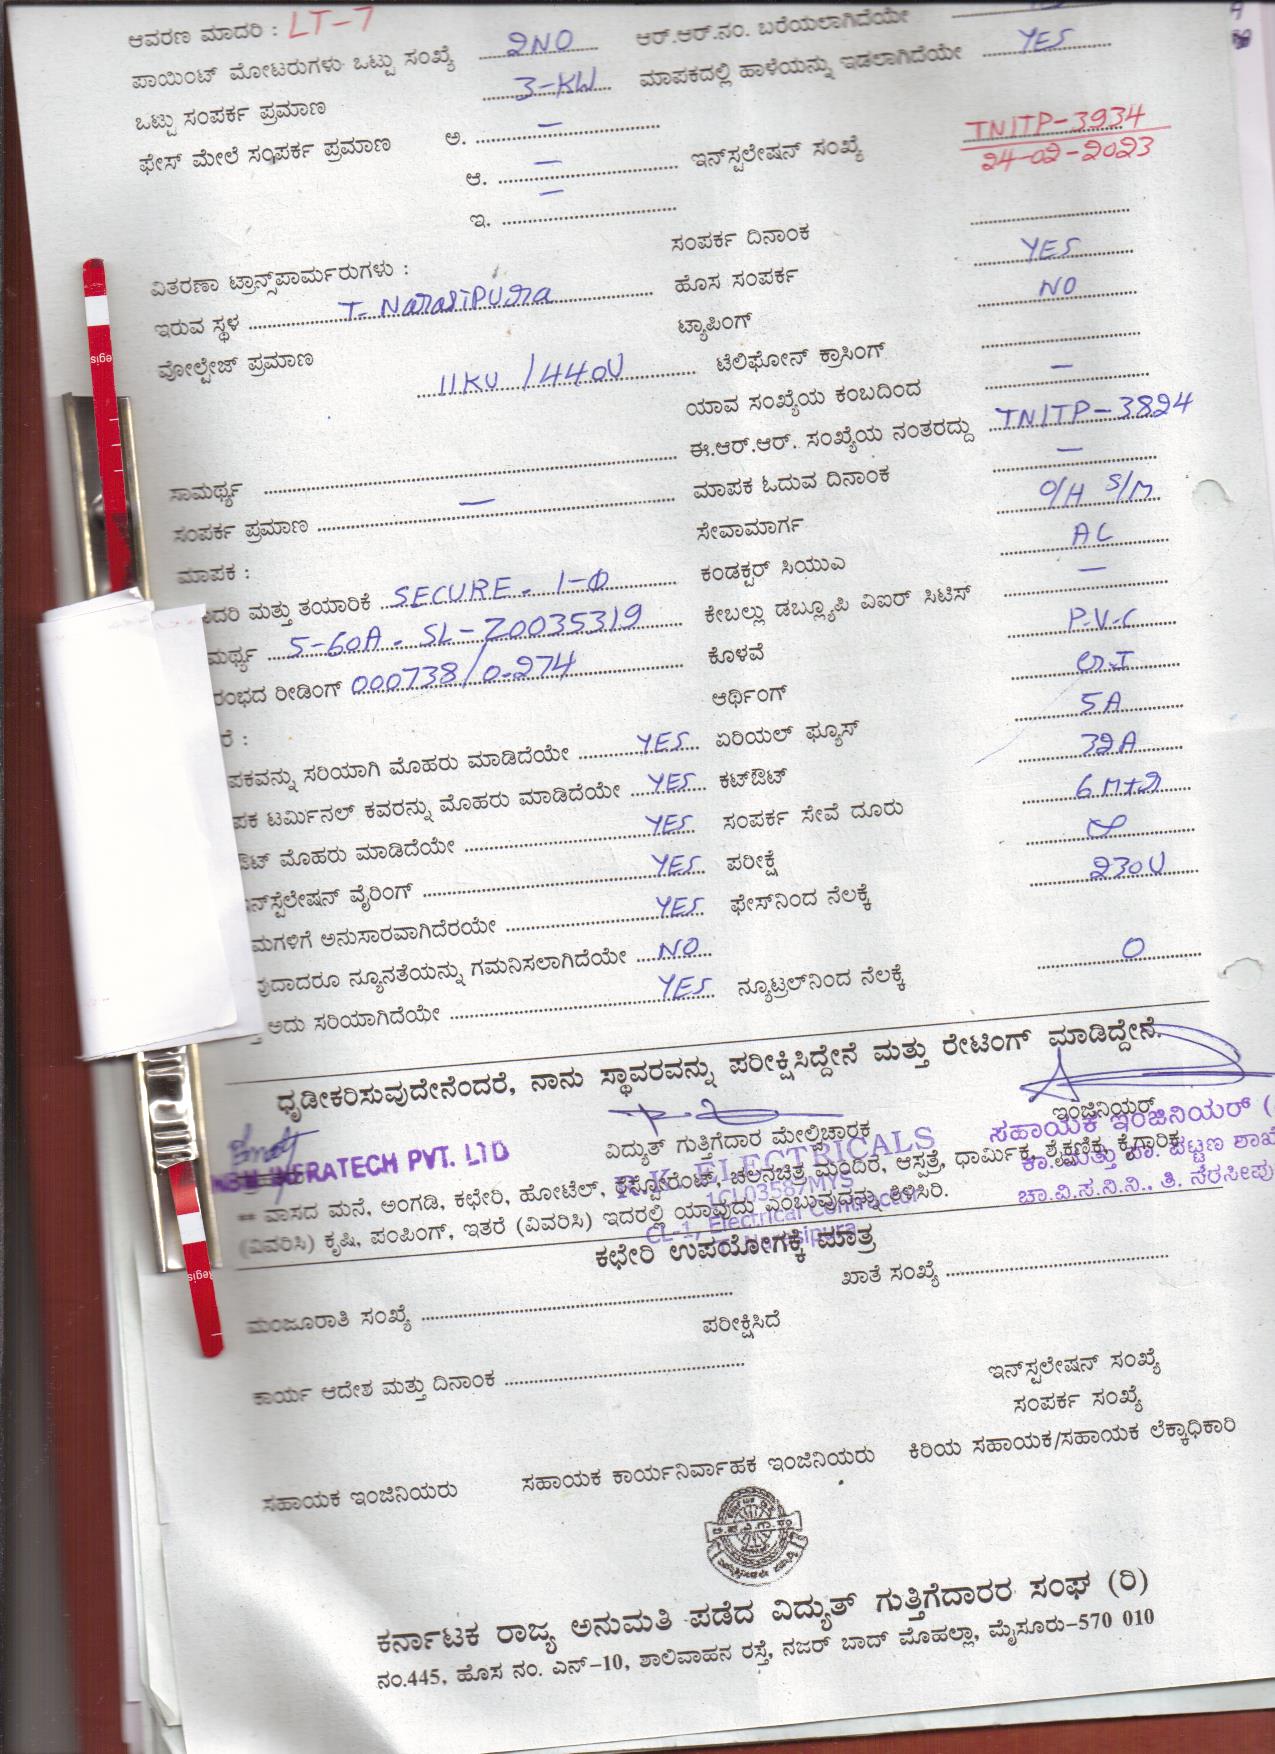 ಆವರಣ ಮಾದರಿ : LT-7
ಪಾಯಿಂಟ್ ಮೋಟರುಗಳು ಒಟ್ಟು ಸಂಖ್ಯೆ 2NO ಆರ್.ಆರ್.ನಂ. ಬರೆಯಲಾಗಿದೆಯೇ
ಒಟ್ಟು ಸಂಪರ್ಕ ಪ್ರಮಾಣ 3-KW ಮಾಪಕದಲ್ಲಿ ಹಾಳೆಯನ್ನು ಇಡಲಾಗಿದೆಯೇ YES
ಫೇಸ್ ಮೇಲೆ ಸಂಪರ್ಕ ಪ್ರಮಾಣ ಅ. –
ಆ. – ಇನ್‌ಸ್ಟಲೇಷನ್ ಸಂಖ್ಯೆ TNITP-3934
24-02-2023
ಇ. –
ಸಂಪರ್ಕ ದಿನಾಂಕ
ವಿತರಣಾ ಟ್ರಾನ್ಸ್‌ಪಾರ್ಮರುಗಳು : ಹೊಸ ಸಂಪರ್ಕ YES
ಇರುವ ಸ್ಥಳ T. NarasiPUra ಟ್ಯಾಪಿಂಗ್ NO
ವೋಲ್ಟೇಜ್ ಪ್ರಮಾಣ 11KV /440V ಟೆಲಿಫೋನ್ ಕ್ರಾಸಿಂಗ್
ಯಾವ ಸಂಖ್ಯೆಯ ಕಂಬದಿಂದ –
ಈ.ಆರ್.ಆರ್. ಸಂಖ್ಯೆಯ ನಂತರದ್ದು TNITP-3824
ಸಾಮರ್ಥ್ಯ ಮಾಪಕ ಓದುವ ದಿನಾಂಕ –
ಸಂಪರ್ಕ ಪ್ರಮಾಣ – ಸೇವಾಮಾರ್ಗ O/H S/M
ಮಾಪಕ : ಕಂಡಕ್ಟರ್ ಸಿಯುಎ AC
ದರಿ ಮತ್ತು ತಯಾರಿಕೆ SECURE. 1-Φ ಕೇಬಲ್ಲು ಡಬ್ಲ್ಯೂಪಿ ವಿಐಆರ್ ಸಿಟಿಸ್ –
ಮರ್ಥ್ಯ 5-60A. SL-Z0035319 ಕೊಳವೆ P.V.C
ರಂಭದ ರೀಡಿಂಗ್ 000738/0.274 ಆರ್ಥಿಂಗ್
ರೆ : ಏರಿಯಲ್ ಫ್ಯೂಸ್ 5A
ಪಕವನ್ನು ಸರಿಯಾಗಿ ಮೊಹರು ಮಾಡಿದೆಯೇ YES ಕಟ್‌ಔಟ್ 32A
ಪಕ ಟರ್ಮಿನಲ್ ಕವರನ್ನು ಮೊಹರು ಮಾಡಿದೆಯೇ YES ಸಂಪರ್ಕ ಸೇವೆ ದೂರು 6 Mtr
ಔಟ್ ಮೊಹರು ಮಾಡಿದೆಯೇ YES ಪರೀಕ್ಷೆ
ನ್‌ಸ್ಟೆಲೇಷನ್ ವೈರಿಂಗ್ YES ಫೇಸ್‌ನಿಂದ ನೆಲಕ್ಕೆ 230V
ಮಗಳಿಗೆ ಅನುಸಾರವಾಗಿದೆರಯೇ YES
ವುದಾದರೂ ನ್ಯೂನತೆಯನ್ನು ಗಮನಿಸಲಾಗಿದೆಯೇ NO
ಅದು ಸರಿಯಾಗಿದೆಯೇ YES ನ್ಯೂಟ್ರಲ್‌ನಿಂದ ನೆಲಕ್ಕೆ 0
ಧೃಡೀಕರಿಸುವುದೇನೆಂದರೆ, ನಾನು ಸ್ಥಾವರವನ್ನು ಪರೀಕ್ಷಿಸಿದ್ದೇನೆ ಮತ್ತು ರೇಟಿಂಗ್ ಮಾಡಿದ್ದೇನೆ.
ವಿದ್ಯುತ್ ಗುತ್ತಿಗೆದಾರ ಮೇಲ್ವಿಚಾರಕ ಇಂಜಿನಿಯರ್
INFRATECH PVT. LTD ELECTRICALS ಸಹಾಯಕ ಇಂಜಿನಿಯರ್ (
ಕಾ. ಮತ್ತು ಪಾ. ಪಟ್ಟಣ ಶಾಖೆ
1CL03587MYS
CL-1, Electrical Contractor
ಚಾ.ವಿ.ಸ.ನಿ.ನಿ., ತಿ. ನರಸೀಪು
** ವಾಸದ ಮನೆ, ಅಂಗಡಿ, ಕಛೇರಿ, ಹೋಟೆಲ್, ರೆಸ್ಟೋರೆಂಟ್, ಚಲನಚಿತ್ರ ಮಂದಿರ, ಆಸ್ಪತ್ರೆ, ಧಾರ್ಮಿಕ, ಶೈಕ್ಷಣಿಕ, ಕೈಗಾರಿಕ,
(ವಿವರಿಸಿ) ಕೃಷಿ, ಪಂಪಿಂಗ್, ಇತರೆ (ವಿವರಿಸಿ) ಇದರಲ್ಲಿ ಯಾವುದು ಎಂಬುವುದನ್ನು ತಿಳಿಸಿರಿ.
ಕಛೇರಿ ಉಪಯೋಗಕ್ಕೆ ಮಾತ್ರ
ಮಂಜೂರಾತಿ ಸಂಖ್ಯೆ ಖಾತೆ ಸಂಖ್ಯೆ
ಪರೀಕ್ಷಿಸಿದೆ
ಕಾರ್ಯ ಆದೇಶ ಮತ್ತು ದಿನಾಂಕ ಇನ್‌ಸ್ಟಲೇಷನ್ ಸಂಖ್ಯೆ
ಸಂಪರ್ಕ ಸಂಖ್ಯೆ
ಸಹಾಯಕ ಇಂಜಿನಿಯರು ಸಹಾಯಕ ಕಾರ್ಯನಿರ್ವಾಹಕ ಇಂಜಿನಿಯರು ಕಿರಿಯ ಸಹಾಯಕ/ಸಹಾಯಕ ಲೆಕ್ಕಾಧಿಕಾರಿ
ಕರ್ನಾಟಕ ರಾಜ್ಯ ಅನುಮತಿ ಪಡೆದ ವಿದ್ಯುತ್ ಗುತ್ತಿಗೆದಾರರ ಸಂಘ (ರಿ)
ನಂ.445, ಹೊಸ ನಂ. ಎನ್-10, ಶಾಲಿವಾಹನ ರಸ್ತೆ, ನಜರ್ ಬಾದ್ ಮೊಹಲ್ಲಾ, ಮೈಸೂರು-570 010